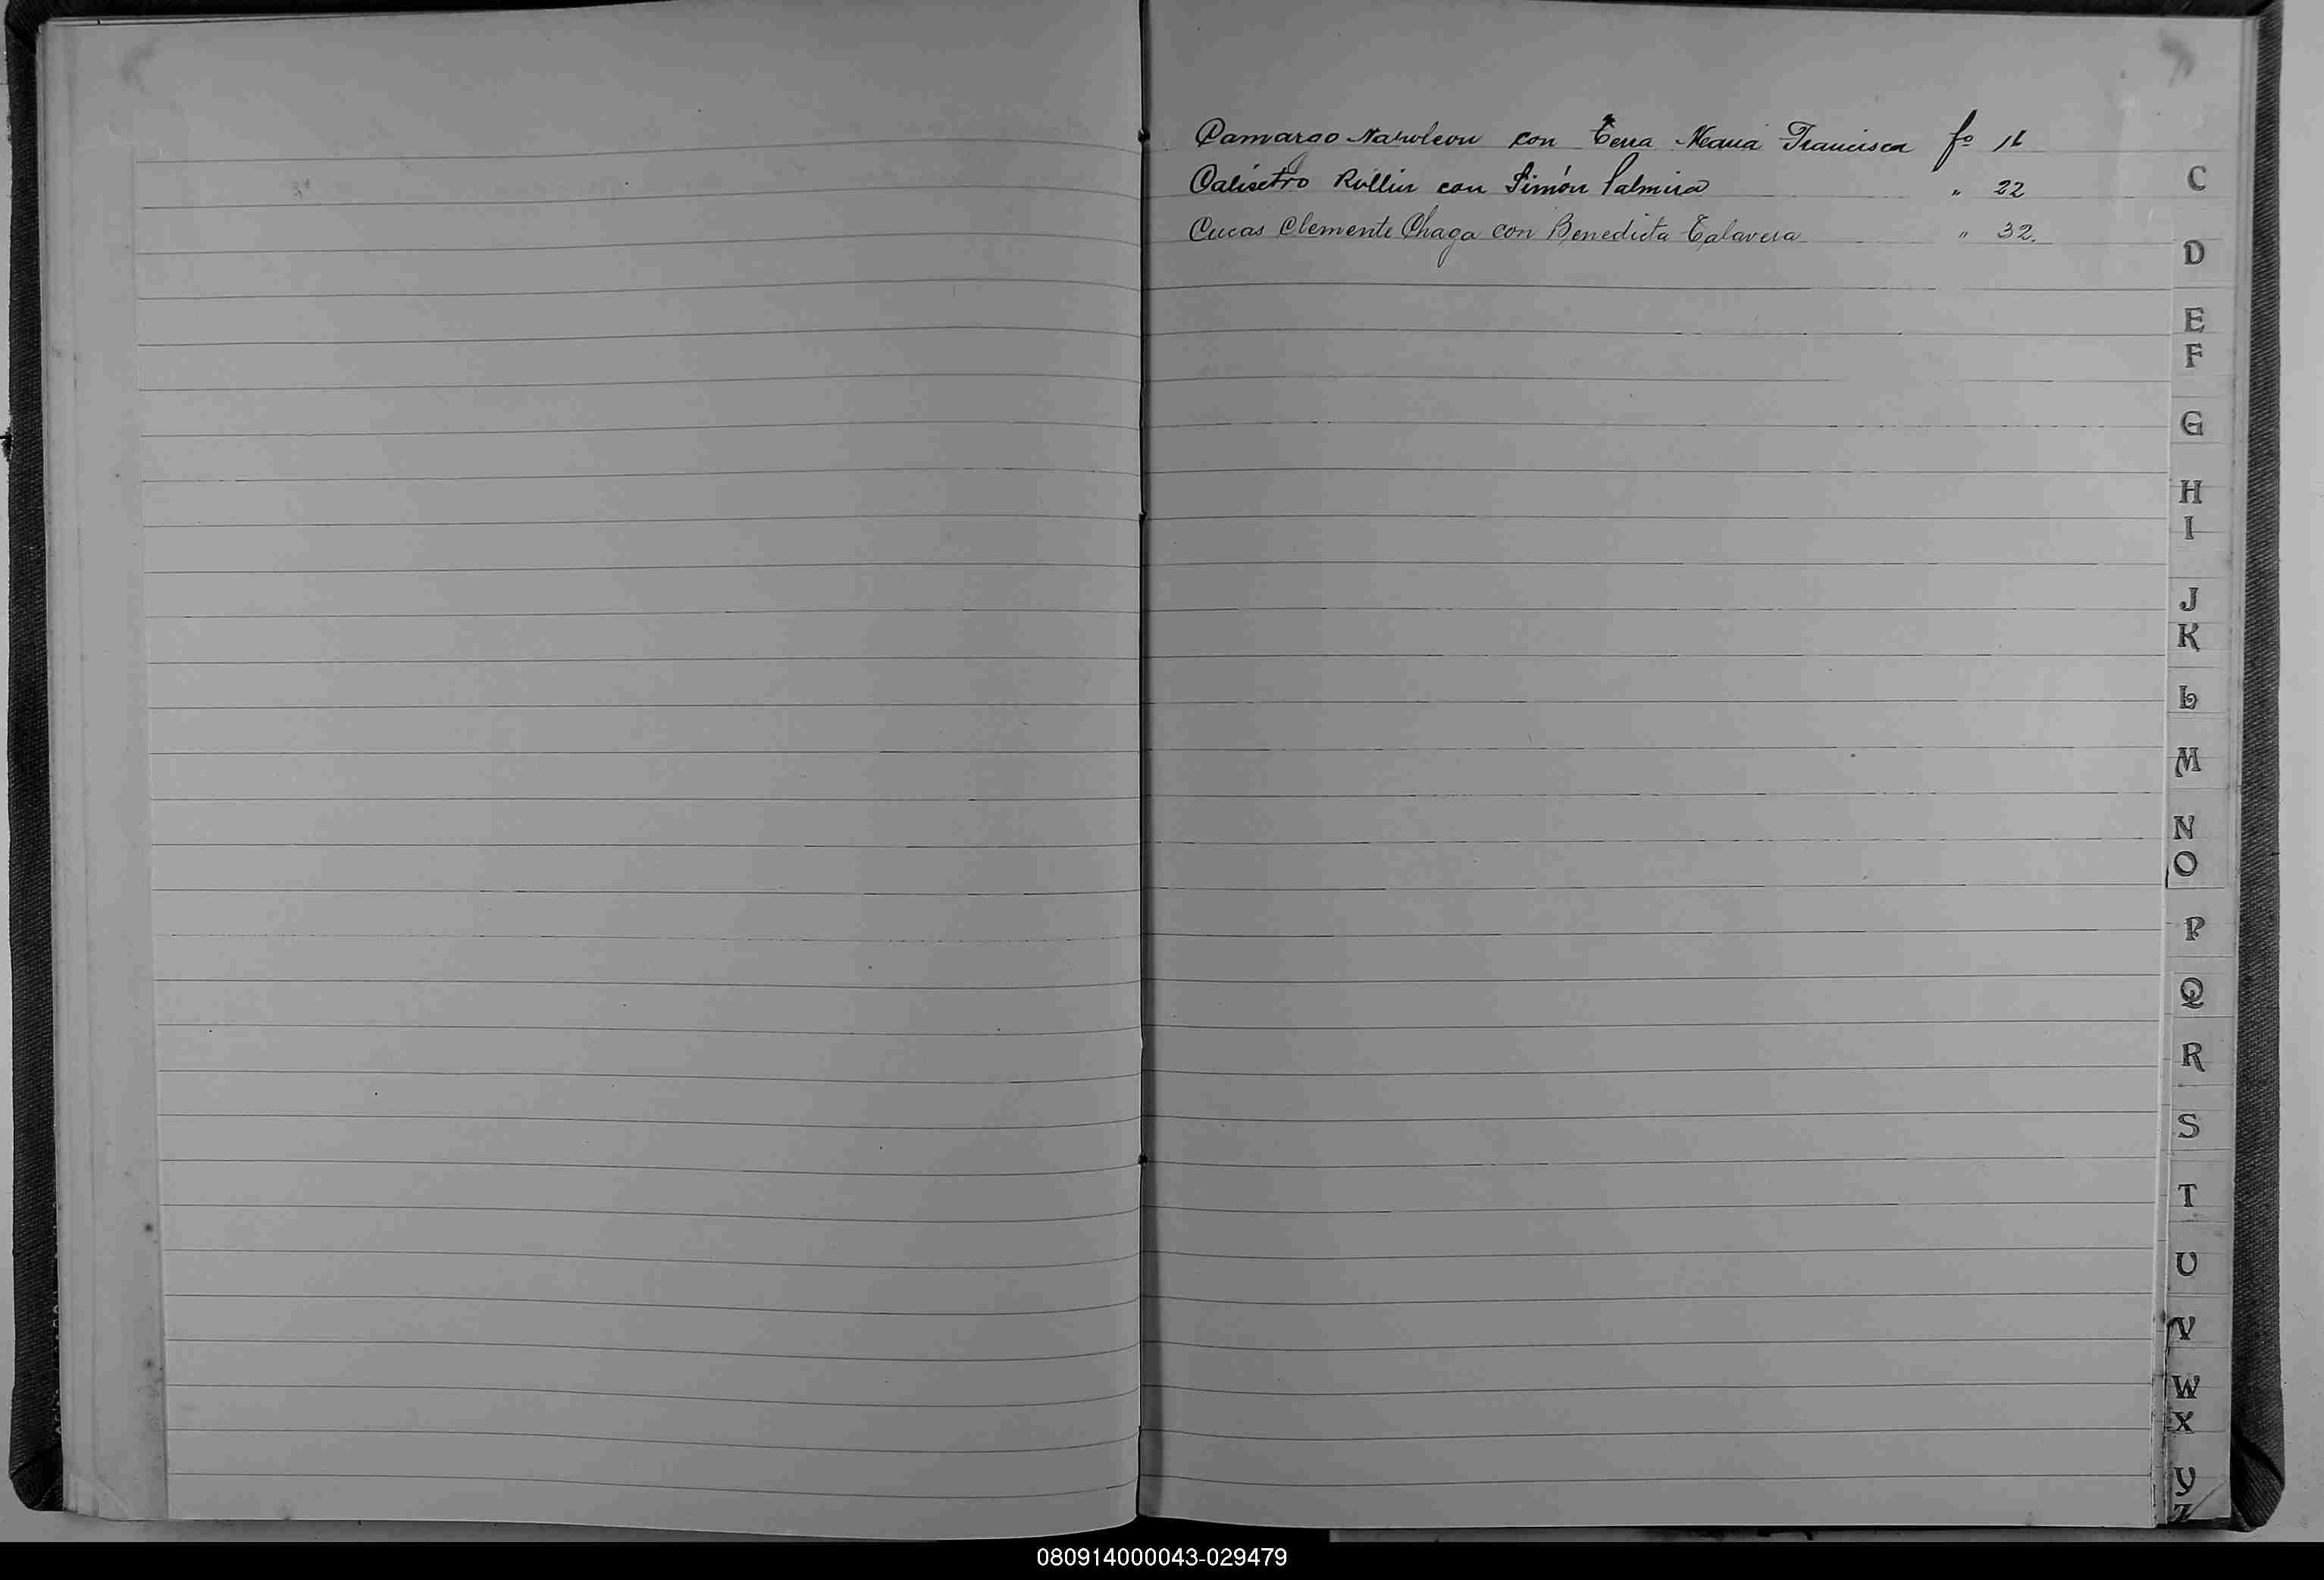 Camargo Napoleon con Terra Maria Francisca fº 16
Calisetro Rollin con Simón Palmira " 22
Cucas Clemente Chaga con Benedicta Talavera " 32.
C
D
E
F
G
H
I
J
K
L
M
N
O
P
Q
R
S
T
U
V
W
X
Y
Z
080914000043-029479